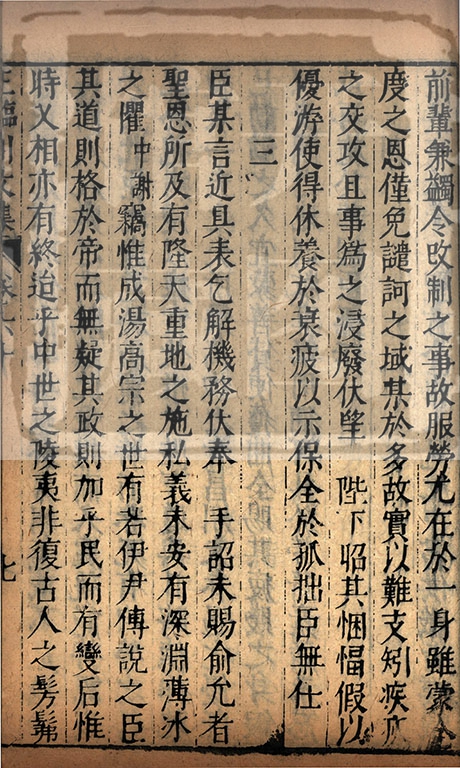 前輩兼蠲令改制之事故服勞尤在於一身雖蒙全
度之恩僅免譴訶之域某於多故實以難支矧疾疢
之交攻且事為之浸廢伏望　陛下昭其悃愊假以
優游使得休養於衰疲以示保全於孤拙臣無任
三
臣某言近具表乞解機務伏奉　手詔未賜俞允者
聖恩所及有隆天重地之施私義未安有深淵薄冰
之懼中謝竊惟成湯高宗之世有若伊尹傅說之臣
其道則格於帝而無疑其政則加乎民而有變后惟
時乂相亦有終迨乎中世之陵夷非復古人之髣髴
王臨川文集 卷六十 七